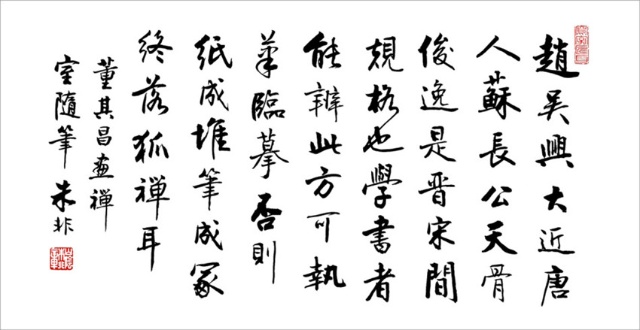 趙吴興大近唐
人蘇長公天骨
俊逸是晋宋間
規格也學書者
能辨此方可執
筆臨摹否則
紙成堆筆成冢
終落狐禅耳
董其昌畫禅
室隨筆 朱非